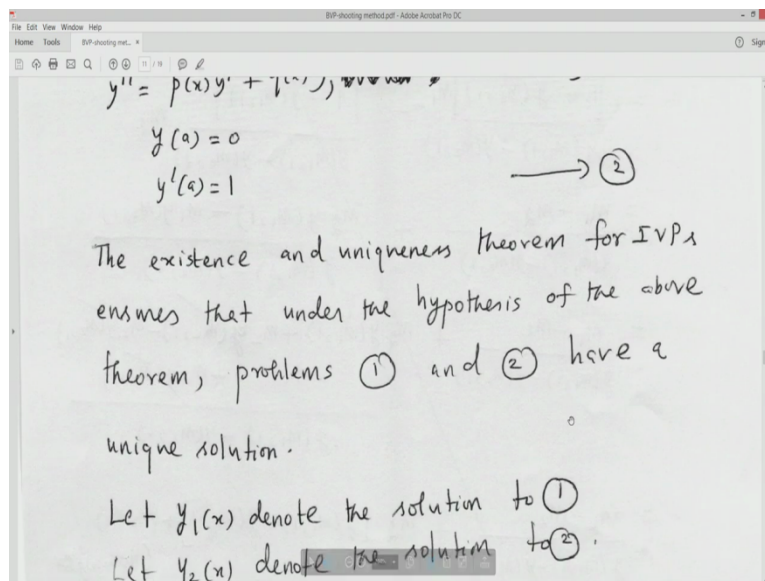 BVP-shooting method.pdf - Adobe Acrobat Pro DC
File Edit View Window Help
Home Tools BVP-shooting met... × Sign
11 / 19
y'' = p(x)y' +
y(a) = 0
y'(a) = 1
→ ②
The existence and uniqueness theorem for IVPs
ensures that under the hypothesis of the above
theorem, problems ① and ② have a
unique solution.
Let y₁(x) denote the solution to ①
Let y₂(x) denote the solution to ②.